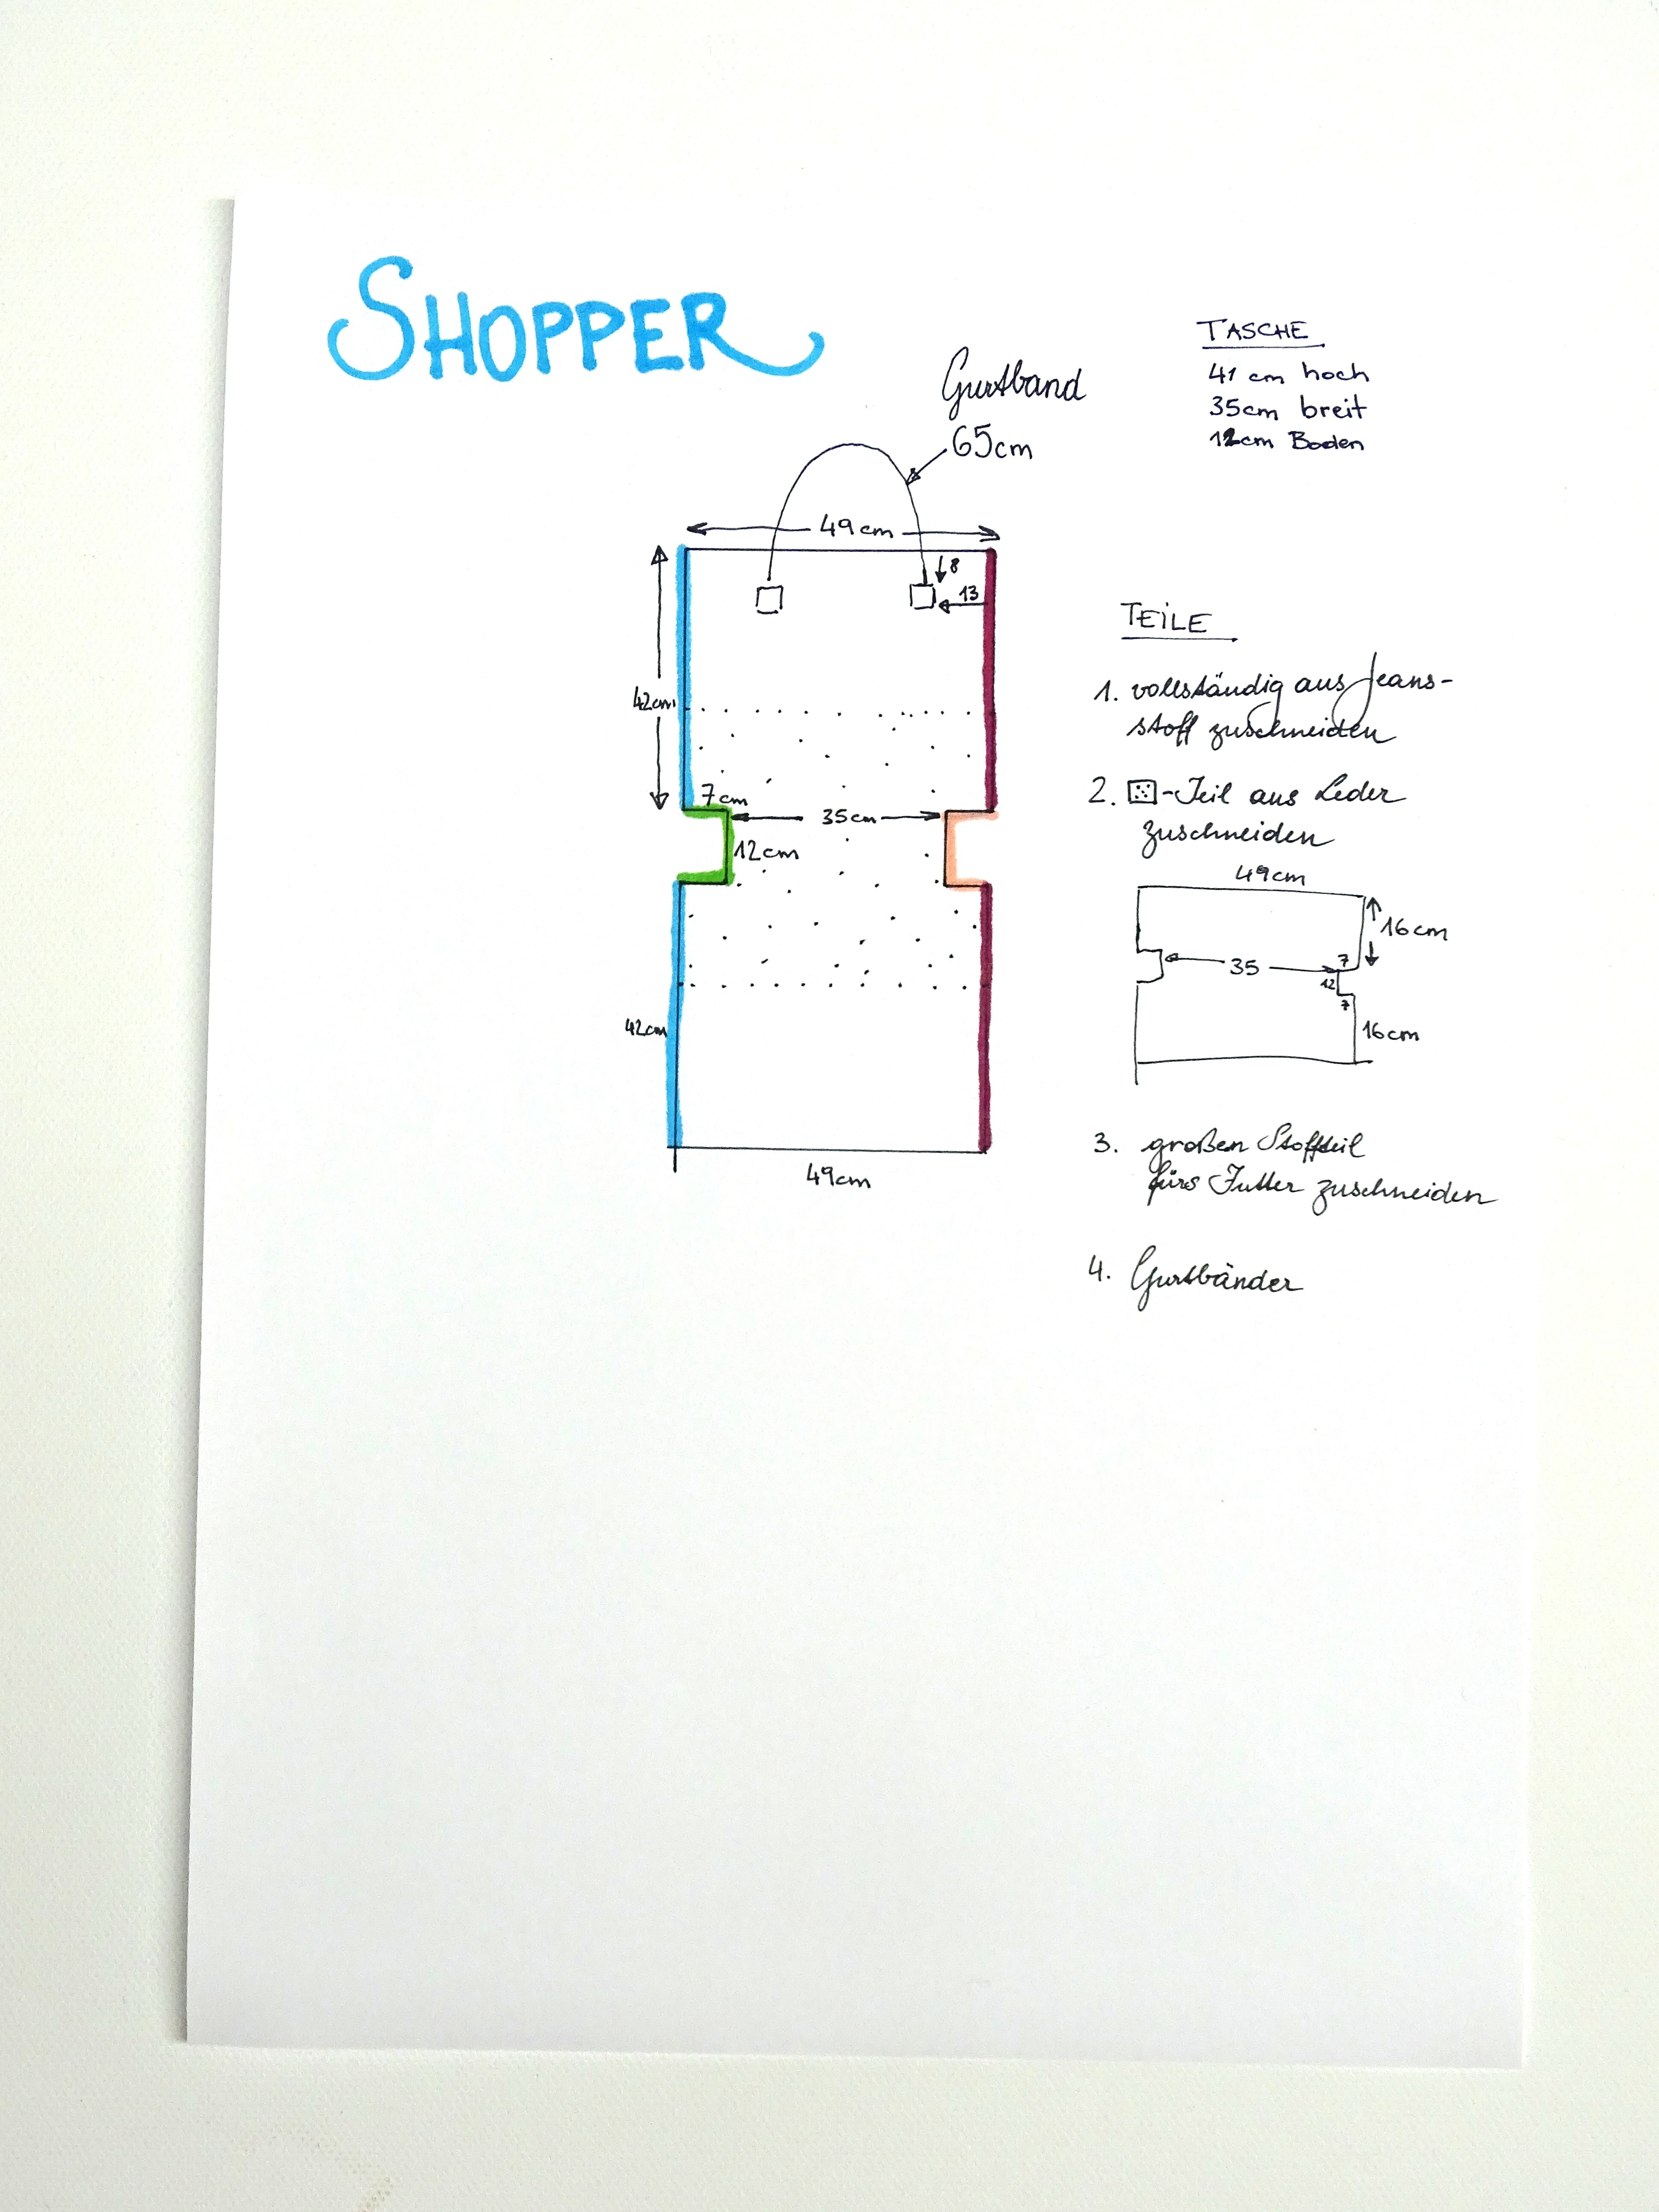 SHOPPER
Gurtband
65cm
TASCHE
41 cm hoch
35cm breit
12cm Boden
49cm
8
13
42cm
7cm
35cm
12cm
42cm
49cm
TEILE
1. vollständig aus Jeans-
stoff zuschneiden
2. -Teil aus Leder
zuschneiden
49cm
16cm
35
7
12
7
16cm
3. großen Stoffteil
fürs Futter zuschneiden
4. Gurtbänder